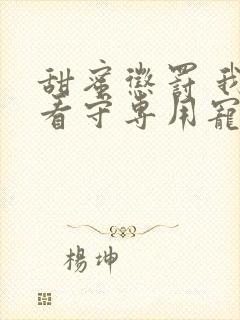 甜蜜懲罰 我
看守專用寵
楊坤